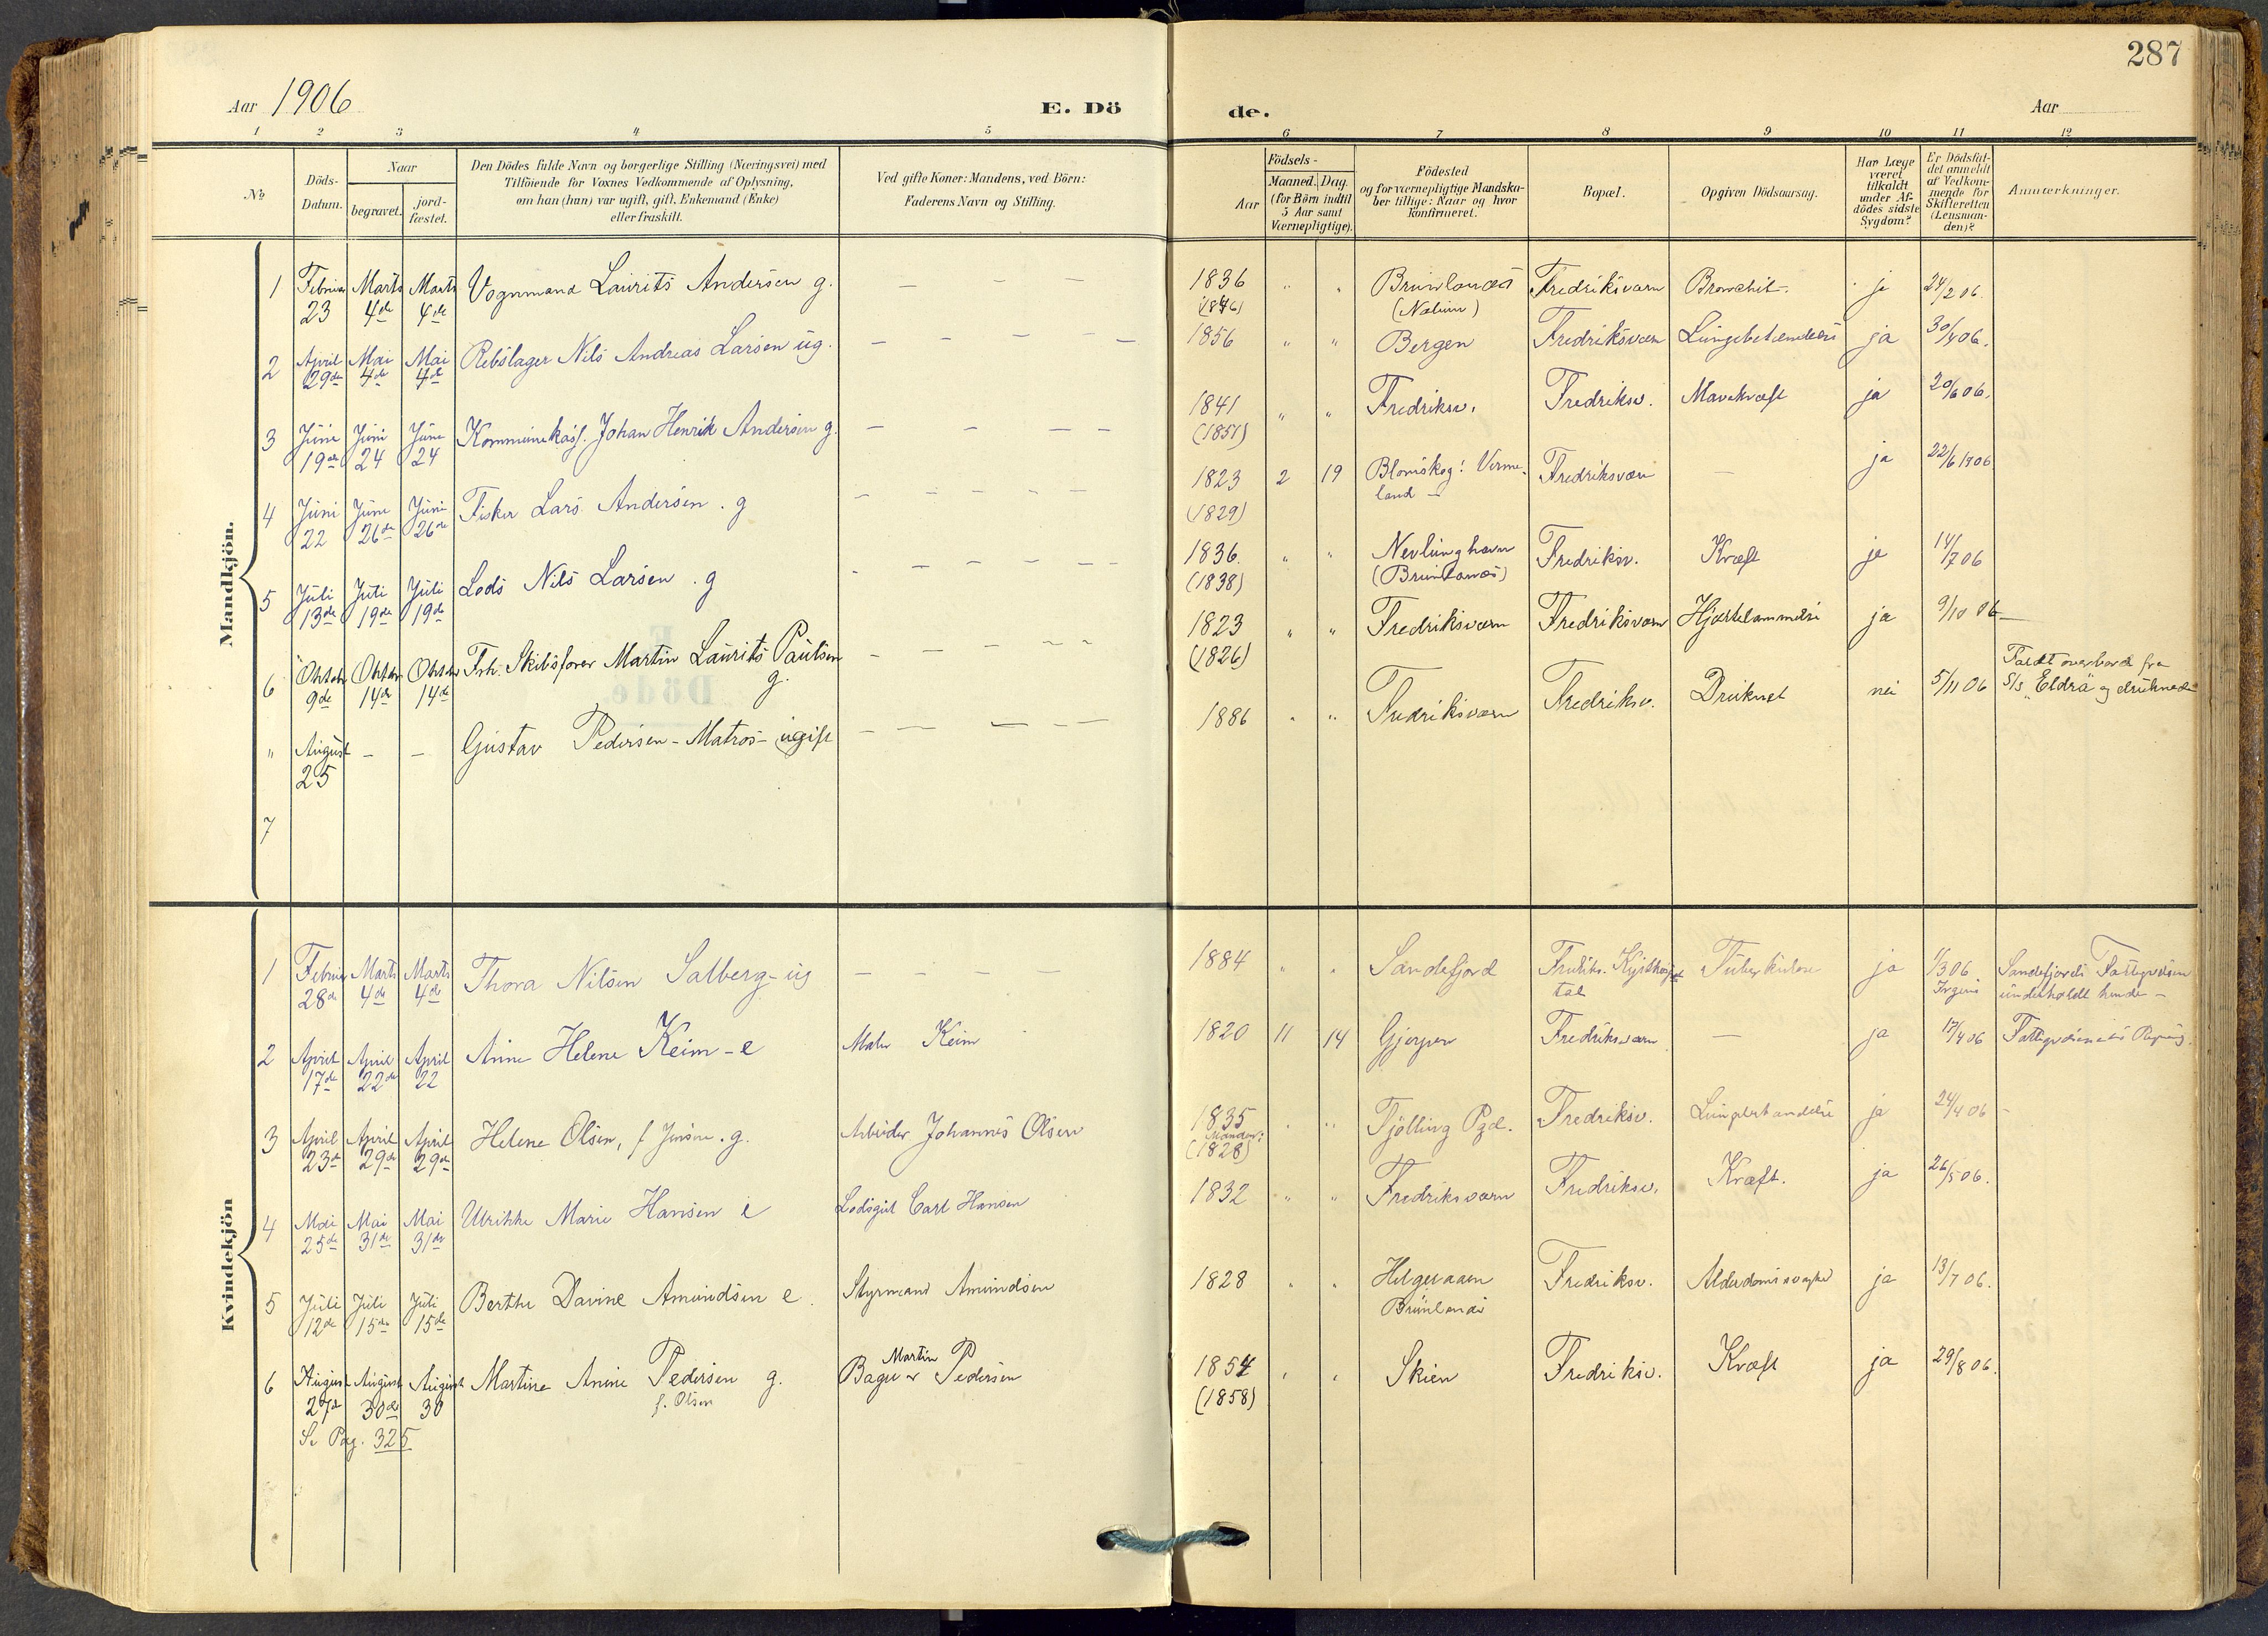 287
Aar 1906
E. Dö de.
Aar
1 2 3 4 5 6 7 8 9 10 11 12
No
Döds-Datum.
Naar
begravet.
jord-fæstet.
Den Dödes fulde Navn og borgerlige Stilling (Næringsvei) med
Tilföiende for Voxnes Vedkommende af Oplysning,
om han (hun) var ugift, gift, Enkemand (Enke)
eller fraskilt.
Ved gifte Koner: Mandens, ved Börn:
Faderens Navn og Stilling.
Födsels-
Aar
Maaned. Dag.
(for Börn indtil
5 Aar samt
Værnepligtige).
Födested
og for værnepligtige Mandska-
ber tillige: Naar og hvor
konfirmeret.
Bopæl.
Opgiven Dödsaarsag.
Har Læge
været
tilkaldt
under Af-
dödes sidste
Sygdom?
Er Dödsfal-
det anmeldt
af Vedkom-
mende for
Skifteretten
(Lensman-
den)?
Anmærkninger.
Mandkjön.
1 Februar 23 Marts 4de Marts 4de Vognmand Laurits Andersen g. — — — 1836 (1846) " " Brunlanæs (Nalum) Fredriksværn Bronchit. ja 24/2 06.
2 April 29de Mai 4de Mai 4de Rebslager Nils Andreas Larsen ug. — — — — 1856 " " Bergen Fredriksværn Lungebetændelse ja 30/4 06.
3 Juni 19de Juni 24 Juni 24 Kommunekass. Johan Henrik Andersen g. — — — — 1841 (1851) " " Fredriksv. Fredriksv. Mavekræft ja 20/6 06.
4 Juni 22 Juni 26de Juni 26de Fisker Lars Andersen . g — — — — — 1823 (1829) 2 19 Blomskog: Verme-
land — Fredriksværn — ja 22/6 1906
5 Juli 13de Juli 19de Juli 19de Lods Nils Larsen . g — — — — — 1836. (1838) " " Nevlunghavn (Brunlanæs) Fredriksv. Kræft ja 14/7 06
6 Oktober 9de Oktober 14de Oktober 14de Fhv. Skibsfører Martin Laurits Paulsen g. — — — — — 1823 (1826) " " Fredriksværn Fredriksværn Hjertelammelse ja 9/10 06 —
" August 25 — — Gustav Pedersen - Matros - ugift — — — — — 1886 " " Fredriksværn Fredriksv. Druknet nei 5/11 06 Faldt overbord fra
S/s "Eldra" og druknede
7
Kvindekjön
1 Februar 28de Marts 4de Marts 4de Thora Nilsen Salberg - ug — — — — 1884 " " Sandefjord Fredriks. Kysthospi-
tal Tuberkulose ja 1/3 06 Sandefjords Fattigvæsen
underholdt hende —
2 April 17de April 22de April 22 Anne Helene Keim - e Maler Keim 1820 11 14 Gjerpen Fredriksværn — ja 17/4 06 Fattigvæsenets
3 April 23de April 29de April 29de Helene Olsen, f Jensen . g. Arbeider Johannes Olsen 1835 Manden: (1828) " " Tjølling Pgd. Fredriksv. Lungebetændelse ja 24/4 06 -
4 Mai 25de Mai 31de Mai 31de Ulrikke Marie Hansen e Lodsgut Carl Hansen 1832 " " Fredriksværn Fredriksv. Kræft. ja 26/5 06.
5 Juli 12de Juli 15de Juli 15de Berthe Davine Amundsen e. Styrmand Amundsen 1828 " " Helgeraaen Brunlanæs Fredriksv. Alderdomssvaghed ja 13/7 06.
6 August 27de August 30de August 30 Martine Anine Pedersen g.
f. Olsen Bager Martin Pedersen 1854 (1858) " " Skien Fredriksv. Kræft ja 29/8 06.
Se Pag. 325